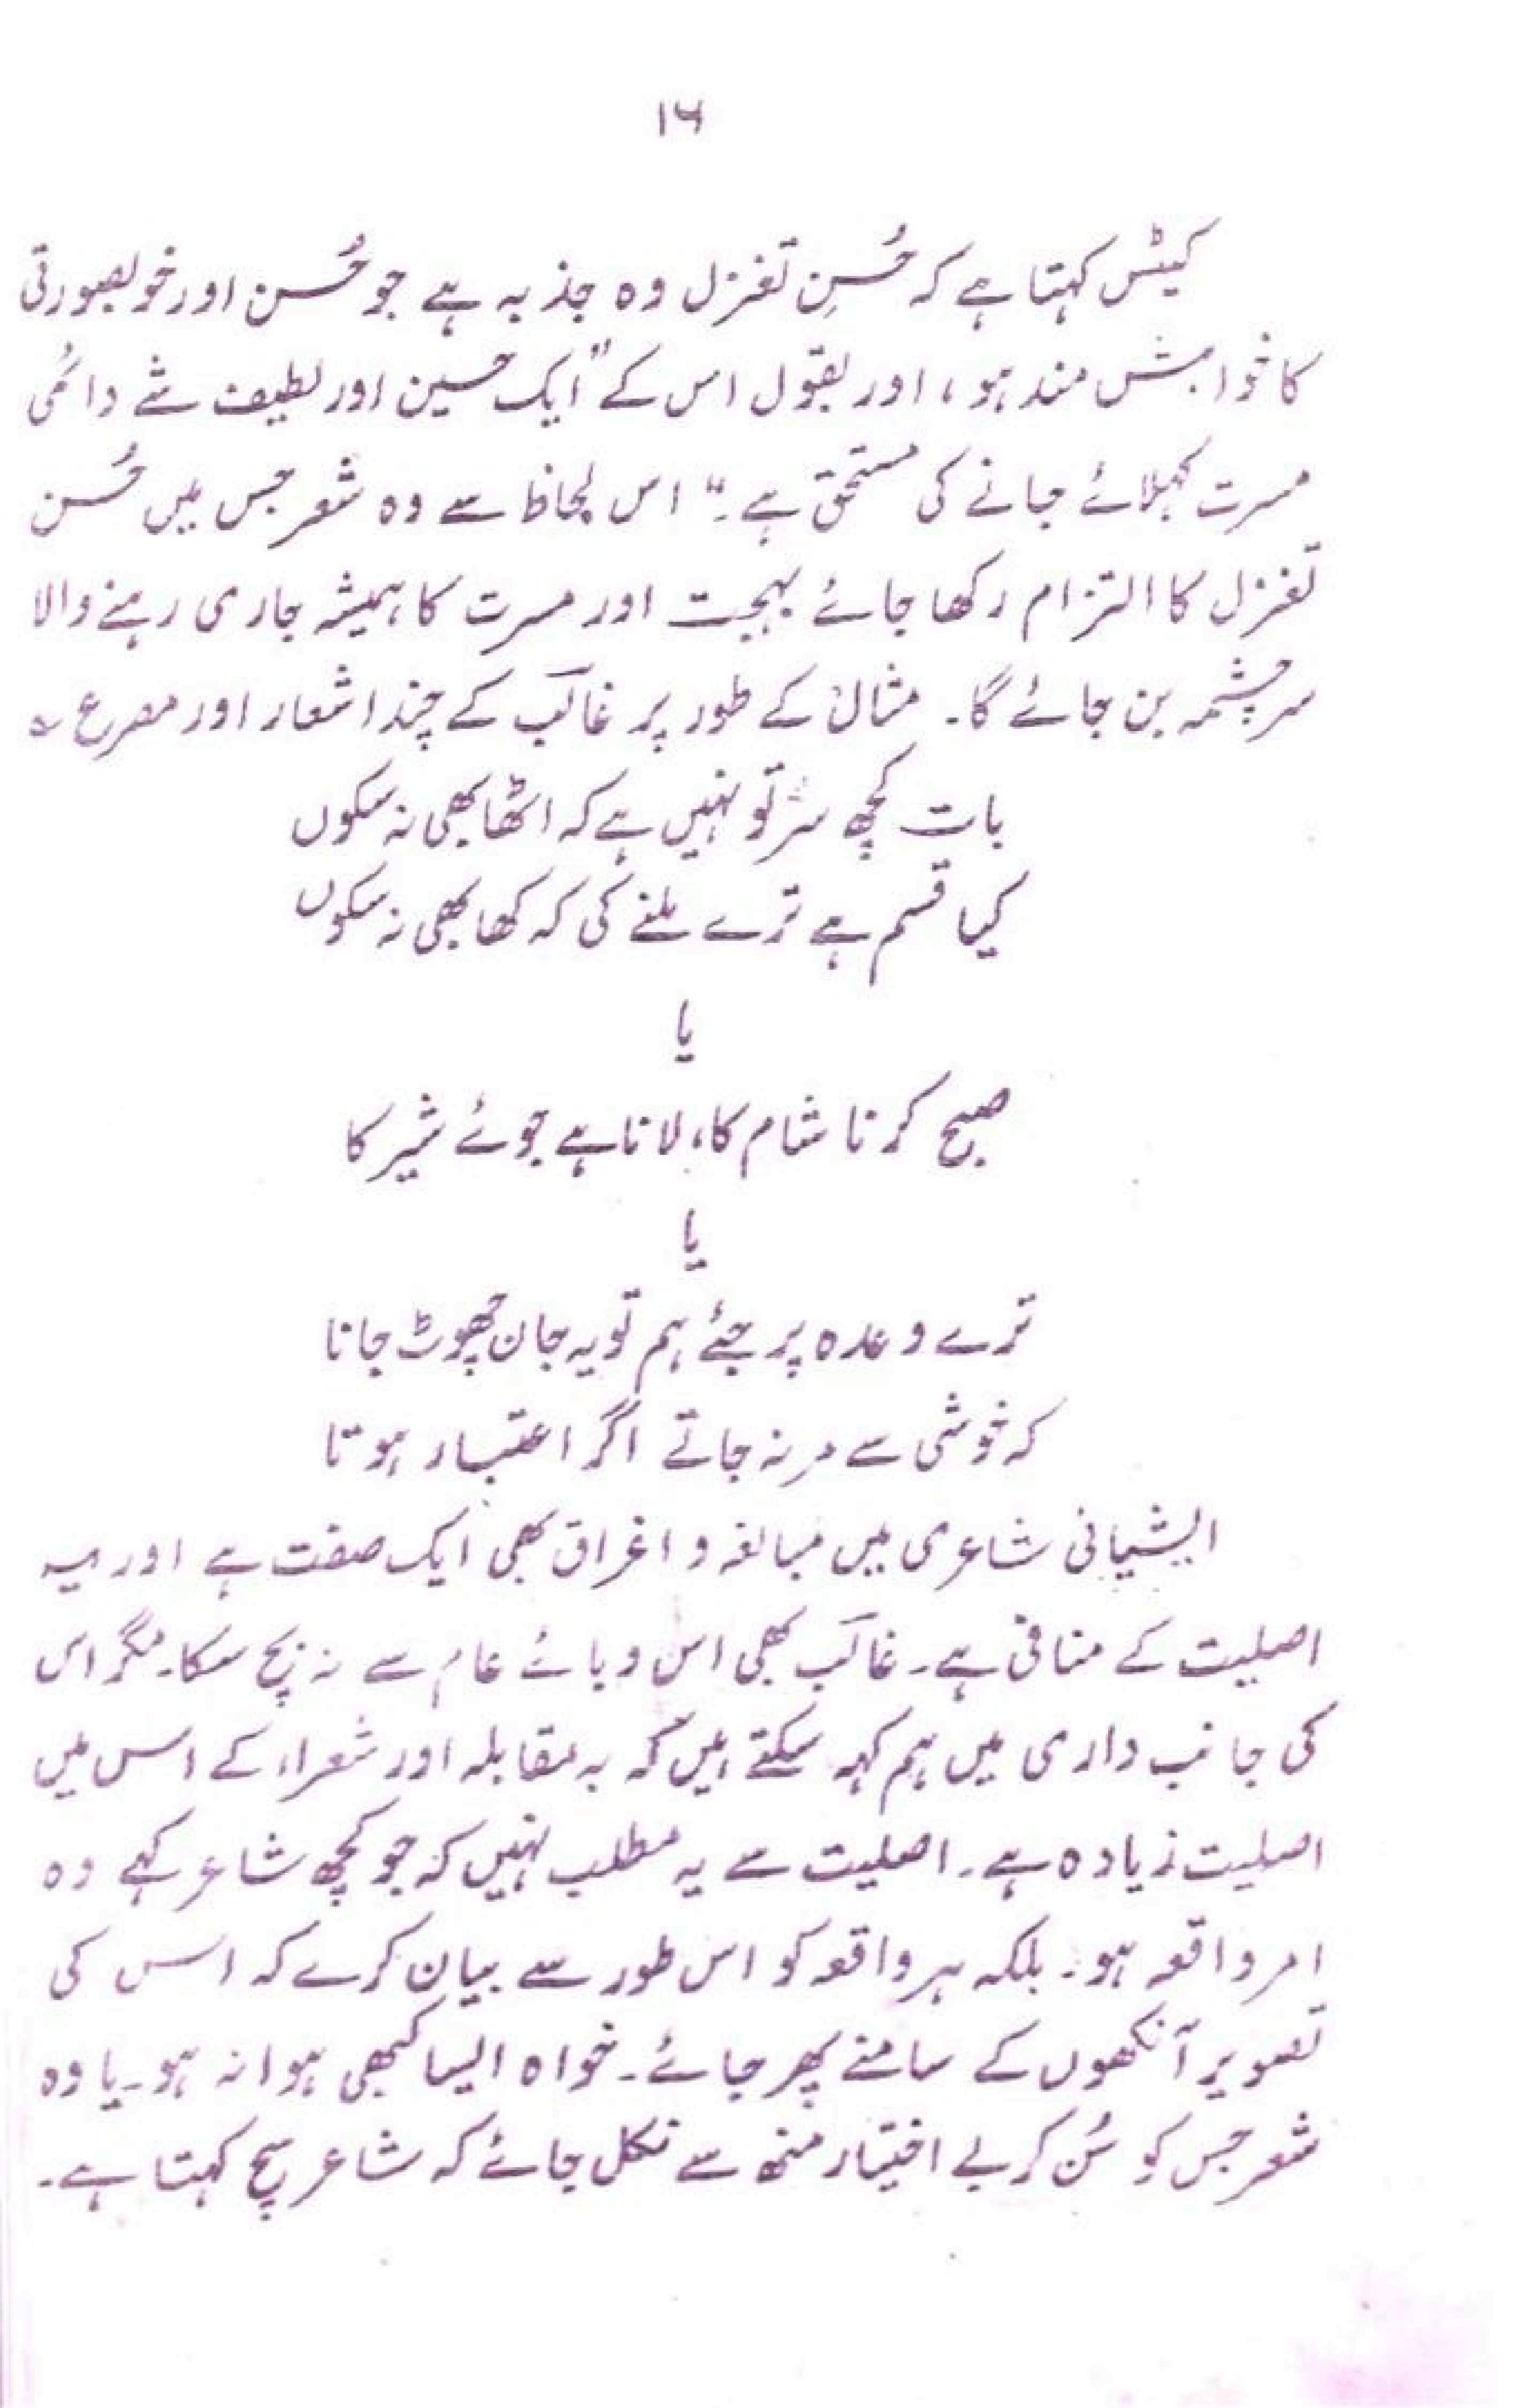 ۱۶
کیٹس کہتا ہے کہ حُسنِ تغزل وہ جذبہ ہے جو حُسن اور خوبصورتی
کا خواہش مند ہو، اور بقول اس کے "ایک حسین اور لطیف شے دائمی
مسرت کہلائے جانے کی مستحق ہے۔" اس لحاظ سے وہ شعر جس میں حُسن
تغزل کا التزام رکھا جائے بہجت اور مسرت کا ہمیشہ جاری رہنے والا
سرچشمہ بن جائے گا۔ مثال کے طور پر غالب کے چند اشعار اور مصرع ؎
بات کچھ سر تو نہیں ہے کہ اٹھا بھی نہ سکوں
کیا قسم ہے ترے ملنے کی کہ کھا بھی نہ سکوں
یا
صبح کرنا شام کا، لانا ہے جوئے شیر کا
یا
ترے وعدہ پر جئے ہم تو یہ جان چھوٹ جانا
کہ خوشی سے مر نہ جاتے اگر اعتبار ہوتا
ایشیائی شاعری میں مبالغہ و اغراق بھی ایک صفت ہے اور یہ
اصلیت کے منافی ہے۔ غالب بھی اس وبائے عام سے نہ بچ سکا۔ مگر اس
کی جانب داری میں ہم کہہ سکتے ہیں کہ بہ مقابلہ اور شعراء کے اس میں
اصلیت زیادہ ہے۔ اصلیت سے یہ مطلب نہیں کہ جو کچھ شاعر کہے وہ
امر واقعہ ہو۔ بلکہ ہر واقعہ کو اس طور سے بیان کرے کہ اس کی
تصویر آنکھوں کے سامنے پھر جائے۔ خواہ ایسا کبھی ہوا نہ ہو۔ یا وہ
شعر جس کو سُن کر بے اختیار منھ سے نکل جائے کہ شاعر سچ کہتا ہے۔